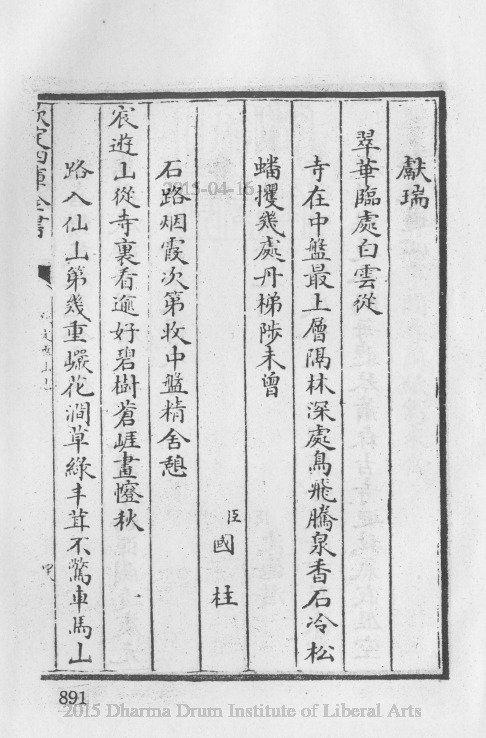 獻瑞
翠華臨處白雲從
寺在中盤最上層隔林深處鳥飛騰泉香石冷松
蟠攫幾處丹梯陟未曾
臣國柱
石路烟霞次第收中盤精舍憩
宸遊山從寺裏看逾好碧樹蒼崖畫
秋
路入仙山第幾重巖花澗草綠丰茸不驚車馬山
欽定四庫全書
2015-04-16
891
2015 Dharma Drum Institute of Liberal Arts